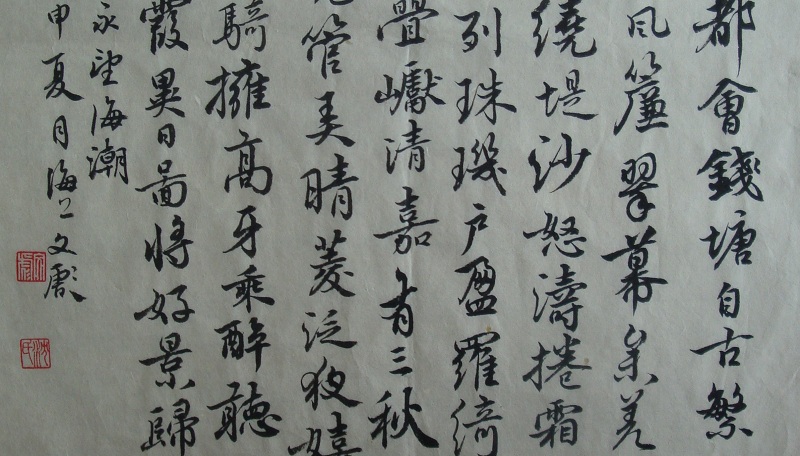 都會錢塘自古繁
風簾翠幕參差
繞堤沙怒濤捲霜
列珠璣戶盈羅綺
疊巘清嘉有三秋
管弄晴菱泛夜嬉
騎擁高牙乘醉聽
霞異日圖將好景歸
永望海潮
申夏月海上文彪